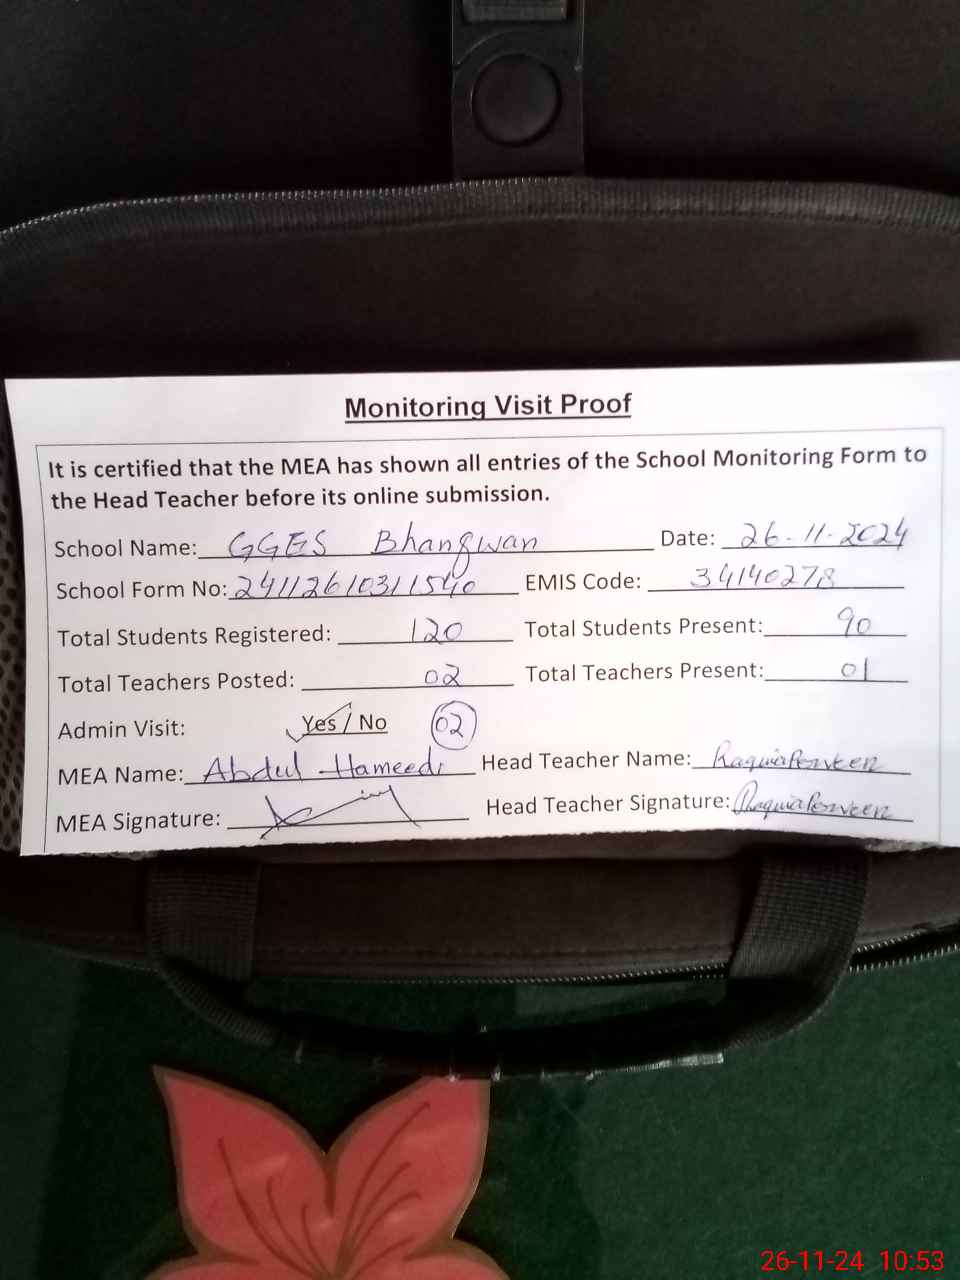 Monitoring Visit Proof
It is certified that the MEA has shown all entries of the School Monitoring Form to
the Head Teacher before its online submission.
School Name: GGES Bhangwan Date: 26-11-2024
School Form No: 24112610311540 EMIS Code: 34140278
Total Students Registered: 120 Total Students Present: 90
Total Teachers Posted: 02 Total Teachers Present: 01
Admin Visit: Yes / No 02
MEA Name: Abdul Hameed Head Teacher Name: Raquia Perveen
MEA Signature: Head Teacher Signature: Raquia Perveen
26-11-24 10:53